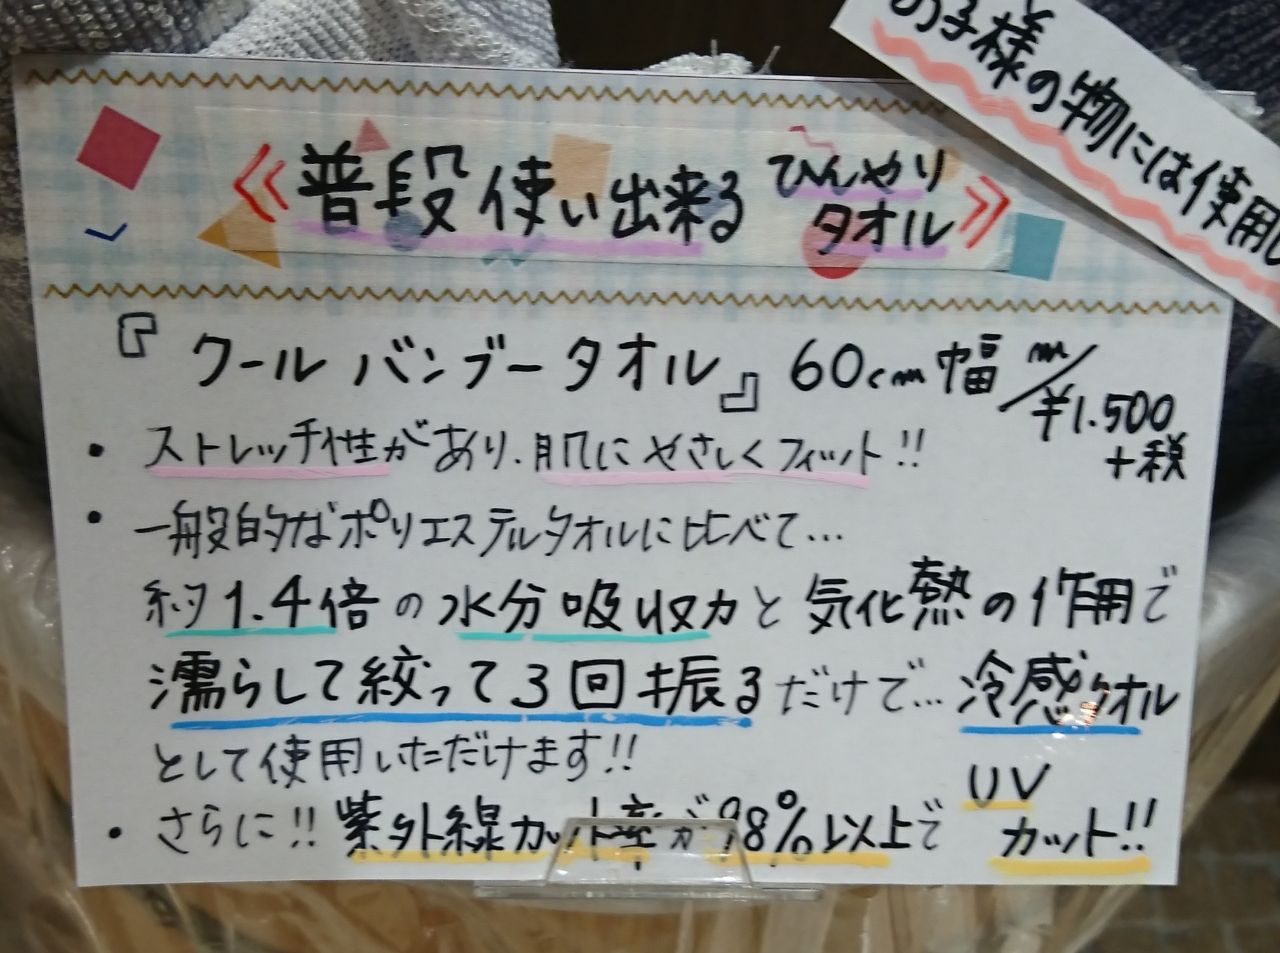 の子様の物には使用し
≪普段使い出来る ひんやり
タオル≫
『クールバンブータオル』60cm幅 m/¥1.500
+税
・ストレッチ性があり、肌にやさしくフィット!!
・一般的なポリエステルタオルに比べて…
約1.4倍の水分吸収力と気化熱の作用で
濡らして絞って3回振るだけで…冷感タオル
として使用いただけます!!
・さらに!!紫外線カット率が98%以上で UV
カット!!